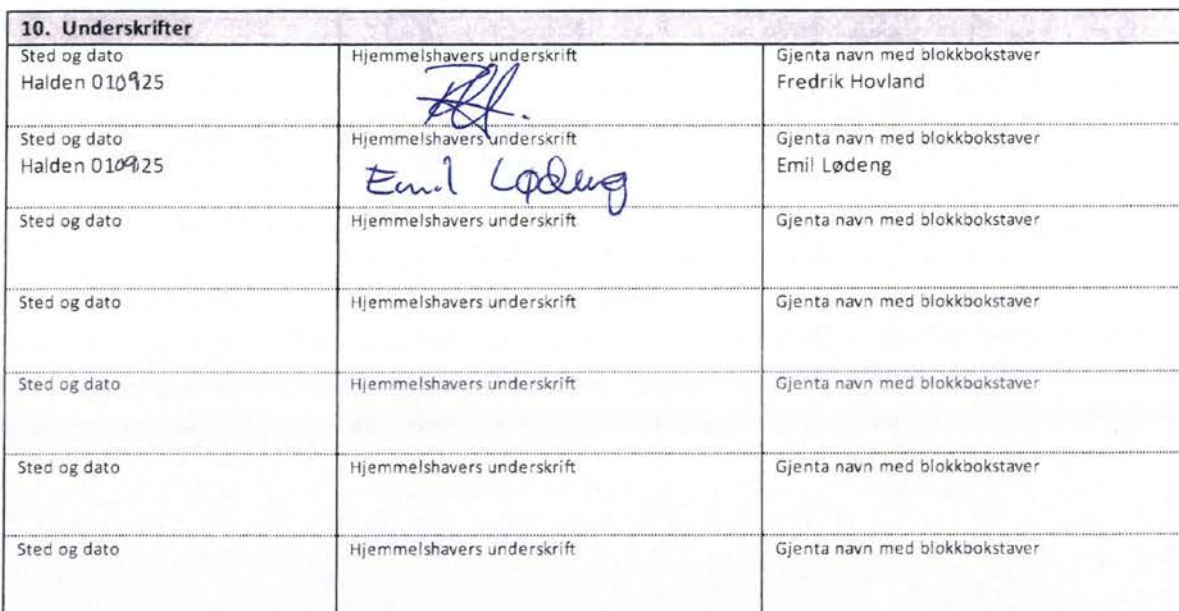 10. Underskrifter
Sted og dato
Hjemmelshavers underskrift
Gjenta navn med blokkbokstaver
Halden 010925
Fredrik Hovland
Sted og dato
Hjemmelshavers underskrift
Gjenta navn med blokkbokstaver
Halden 010925
Emil Lødeng
Emil Lødeng
Sted og dato
Hjemmelshavers underskrift
Gjenta navn med blokkbokstaver
Sted og dato
Hjemmelshavers underskrift
Gjenta navn med blokkbokstaver
Sted og dato
Hjemmelshavers underskrift
Gjenta navn med blokkbokstaver
Sted og dato
Hjemmelshavers underskrift
Gjenta navn med blokkbokstaver
Sted og dato
Hjemmelshavers underskrift
Gjenta navn med blokkbokstaver